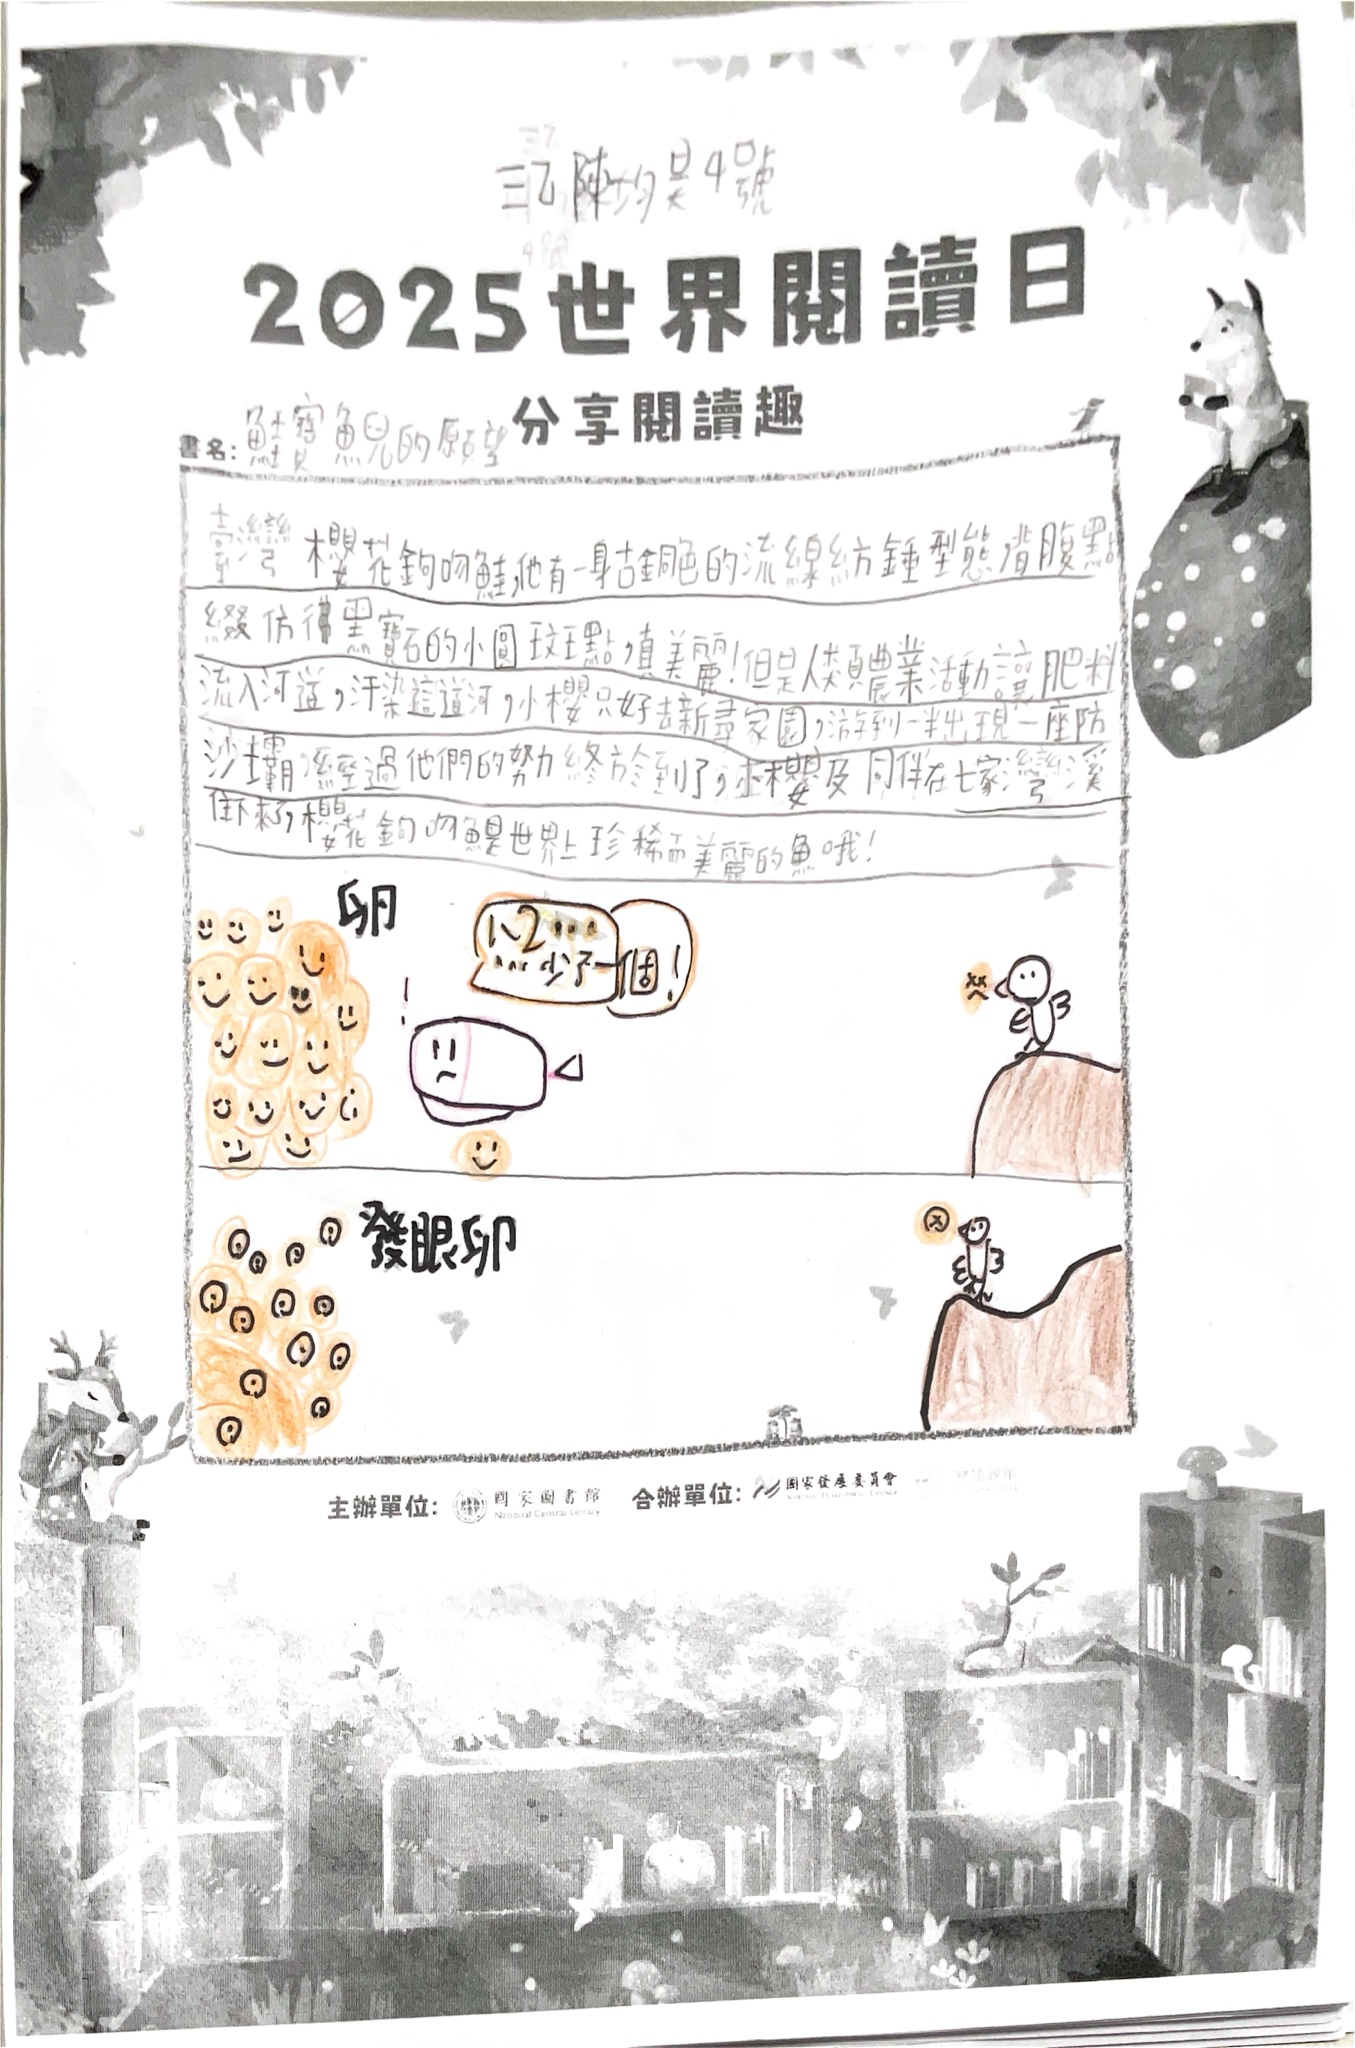 三乙 陳均昊4號
2025世界閱讀日
分享閱讀趣
書名:鮭寶魚兒的願望
臺灣櫻花鉤吻鮭,他有一身古銅色的流線紡錘型態背腹點
綴仿彿黑寶石的小圓斑點,真美麗!但是人類農業活動讓肥料
流入河道,汙染這道河,小櫻只好去新尋家園,游到一半出現一座防
沙壩,經過他們的努力終於到了,小櫻及同伴在七家灣溪
住下來了,櫻花鉤吻鯷世界上珍稀而美麗的魚哦!
卵
1、2……
……少了一個!
發眼卵
主辦單位: 國家圖書館 合辦單位: 國家發展委員會
National Central Library